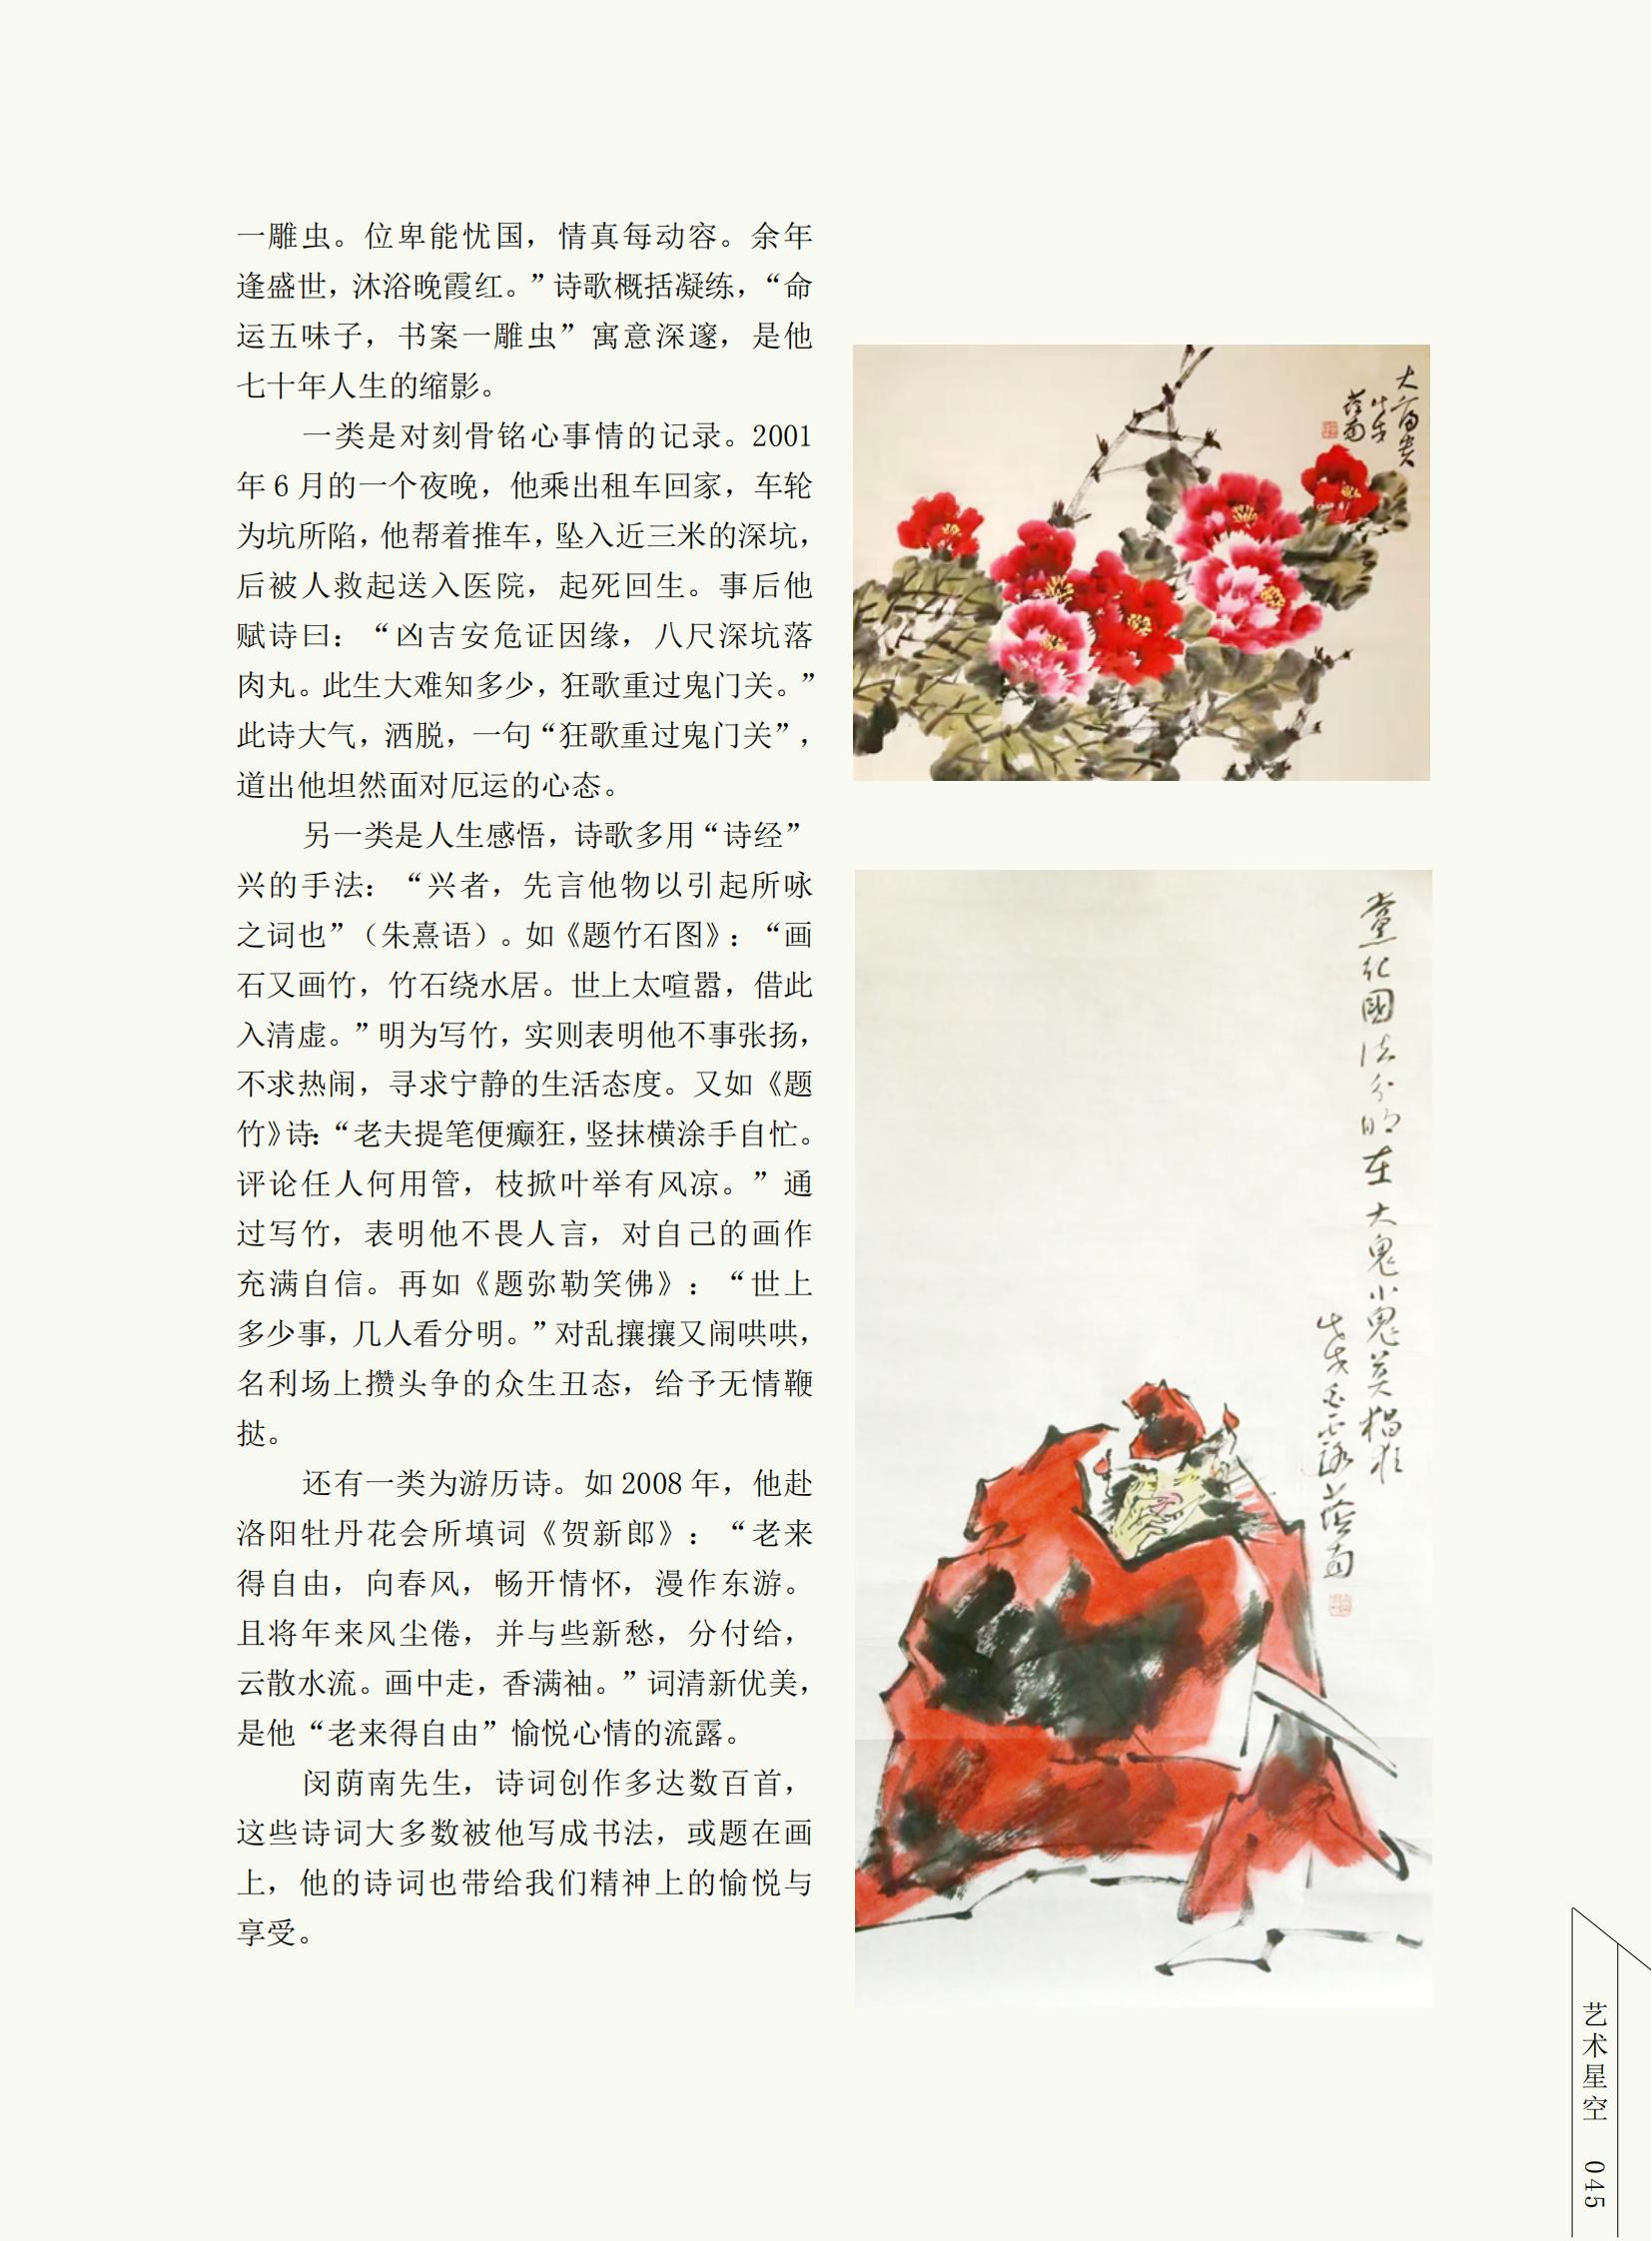 一雕虫。位卑能忧国，情真每动容。余年
逢盛世，沐浴晚霞红。”诗歌概括凝练，“命
运五味子，书案一雕虫”寓意深邃，是他
七十年人生的缩影。
一类是对刻骨铭心事情的记录。2001
年 6 月的一个夜晚，他乘出租车回家，车轮
为坑所陷，他帮着推车，坠入近三米的深坑，
后被人救起送入医院，起死回生。事后他
赋诗曰：“凶吉安危证因缘，八尺深坑落
肉丸。此生大难知多少，狂歌重过鬼门关。”
此诗大气，洒脱，一句“狂歌重过鬼门关”，
道出他坦然面对厄运的心态。
另一类是人生感悟，诗歌多用“诗经”
兴的手法：“兴者，先言他物以引起所咏
之词也”（朱熹语）。如《题竹石图》：“画
石又画竹，竹石绕水居。世上太喧嚣，借此
入清虚。”明为写竹，实则表明他不事张扬，
不求热闹，寻求宁静的生活态度。又如《题
竹》诗：“老夫提笔便癫狂，竖抹横涂手自忙。
评论任人何用管，枝掀叶举有风凉。”通
过写竹，表明他不畏人言，对自己的画作
充满自信。再如《题弥勒笑佛》：“世上
多少事，几人看分明。”对乱攘攘又闹哄哄，
名利场上攒头争的众生丑态，给予无情鞭
挞。
还有一类为游历诗。如 2008 年，他赴
洛阳牡丹花会所填词《贺新郎》：“老来
得自由，向春风，畅开情怀，漫作东游。
且将年来风尘倦，并与些新愁，分付给，
云散水流。画中走，香满袖。”词清新优美，
是他“老来得自由”愉悦心情的流露。
闵荫南先生，诗词创作多达数百首，
这些诗词大多数被他写成书法，或题在画
上，他的诗词也带给我们精神上的愉悦与
享受。
大富贵
戊戌
荫南
黨纪國法分明在大鬼小鬼莫猖狂
艺术星空 045